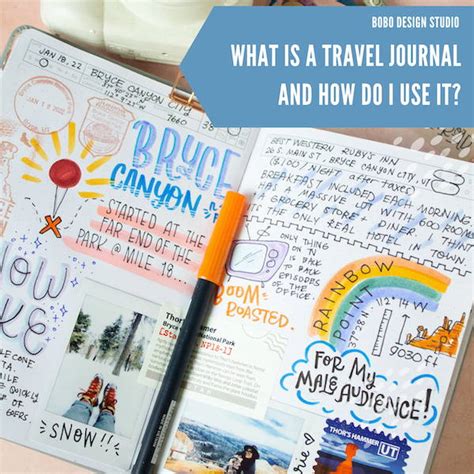 BOBO DESIGN STUDIO
WHAT IS A TRAVEL JOURNAL
AND HOW DO I USE IT?
JAN 18, 22
BRYCE CANYON CITY
7660
JAN 18 2022
BRYCE
CANYON
STARTED AT THE
FAR END OF THE
PARK @ MILE 18...
SNOW
SNOW!!
BEST WESTERN RUBY'S INN
26 S. MAIN ST. BRYCE CANYON CITY, UT
($100/NIGHT after taxes)
BREAKFAST INCLUDED EACH MORNING
HAS A MASSIVE LOT WITH 600 ROOMS
A GROCERY STORE + DINER. THIS
IS THE ONLY REAL HOTEL IN TOWN.
ONLY THING
ON TV
IS BACK
TO BACK
EPISODES
OF THE
OFFICE.
BOOM
ROASTED.
RAINBOW
POINT
9030 ft
FOR MY
MALE AUDIENCE!
THOR'S HAMMER
UT